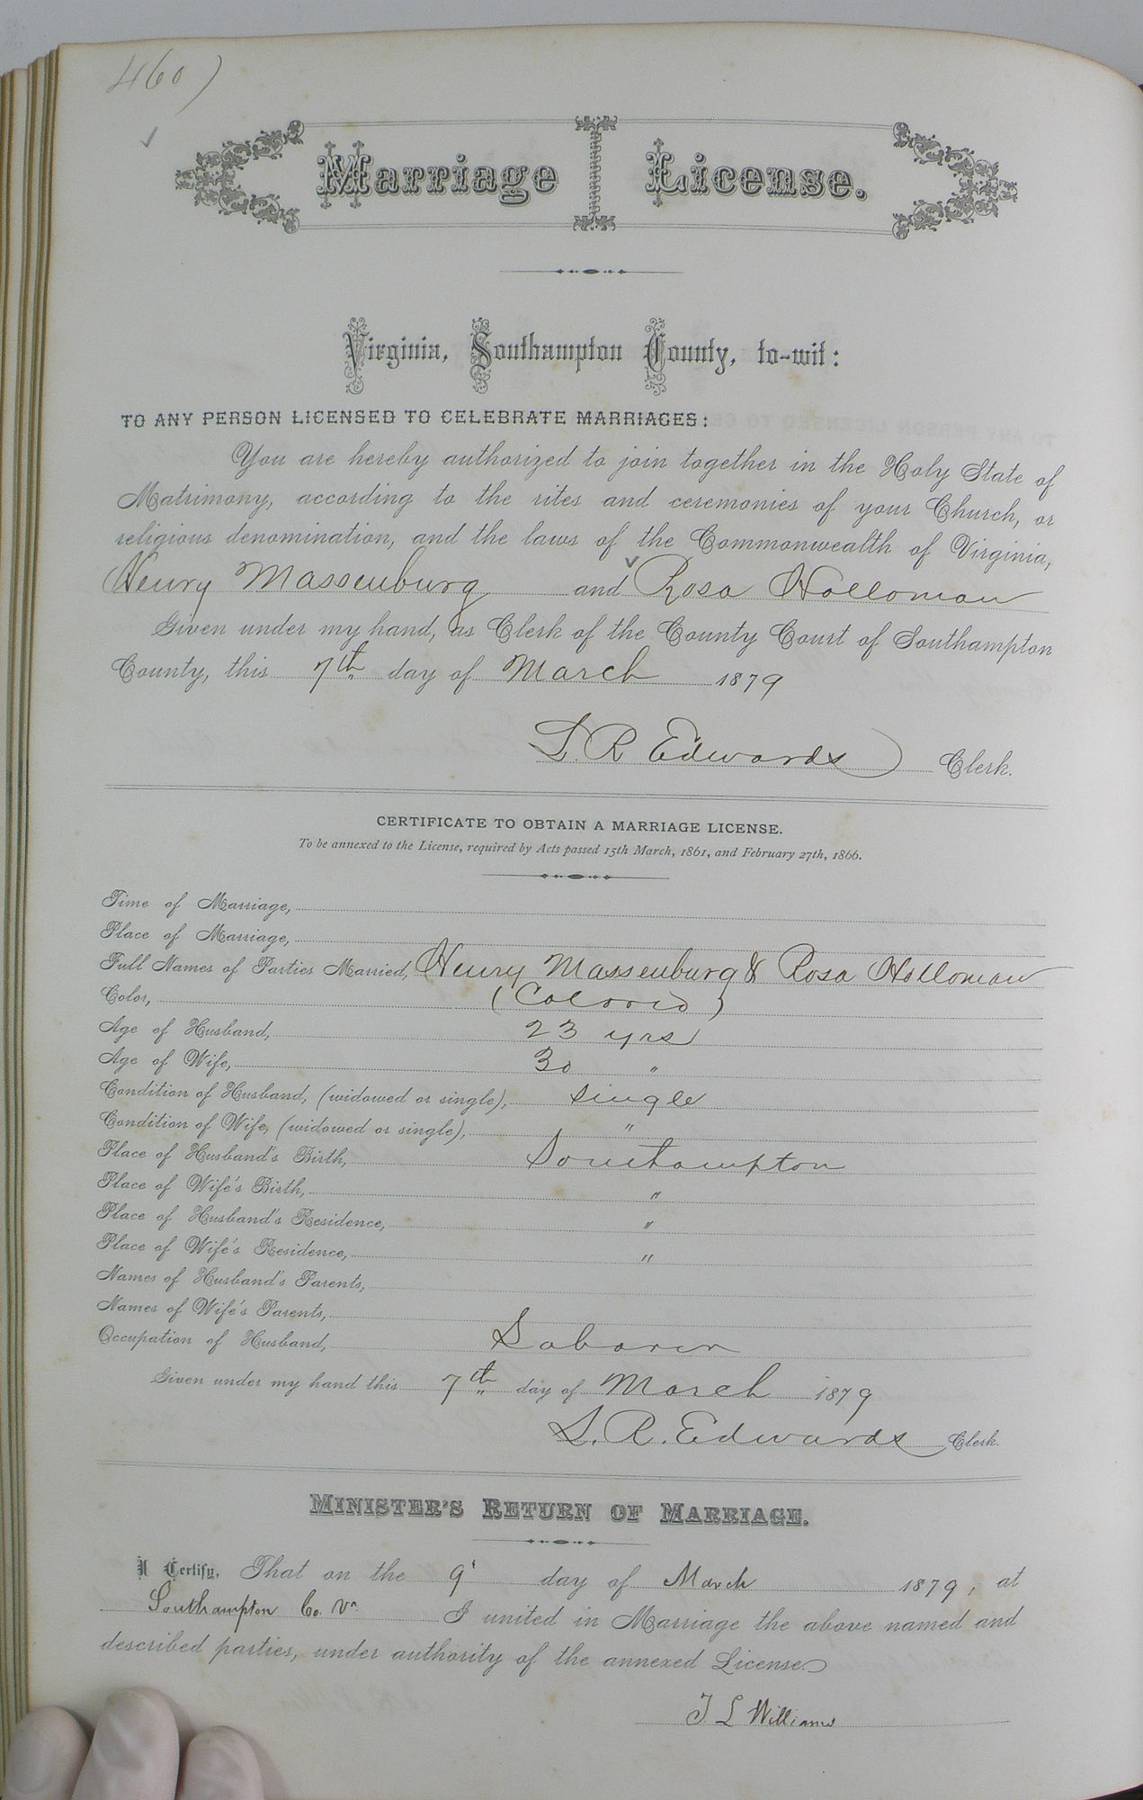 460)
Marriage License.
Virginia, Southampton County, to-wit:
TO ANY PERSON LICENSED TO CELEBRATE MARRIAGES:
You are hereby authorized to join together in the Holy State of
Matrimony, according to the rites and ceremonies of your Church, or
religious denomination, and the laws of the Commonwealth of Virginia,
Henry Massenburg and Rosa Holloman
Given under my hand, as Clerk of the County Court of Southampton
County, this 7th day of March 1879
L. R. Edwards Clerk.
CERTIFICATE TO OBTAIN A MARRIAGE LICENSE.
To be annexed to the License, required by Acts passed 15th March, 1861, and February 27th, 1866.
Time of Marriage,
Place of Marriage,
Full Names of Parties Married, Henry Massenburg & Rosa Holloman
Color, (Colored)
Age of Husband, 23 yrs
Age of Wife, 30 "
Condition of Husband, (widowed or single), single
Condition of Wife, (widowed or single), "
Place of Husband's Birth, Southampton
Place of Wife's Birth, "
Place of Husband's Residence, "
Place of Wife's Residence, "
Names of Husband's Parents,
Names of Wife's Parents,
Occupation of Husband, Laborer
Given under my hand this 7th day of March 1879
L. R. Edwards Clerk.
MINISTER'S RETURN OF MARRIAGE.
I Certify, That on the 9' day of March 1879, at
Southampton Co. Va. I united in Marriage the above named and
described parties, under authority of the annexed License.
J. L Williams